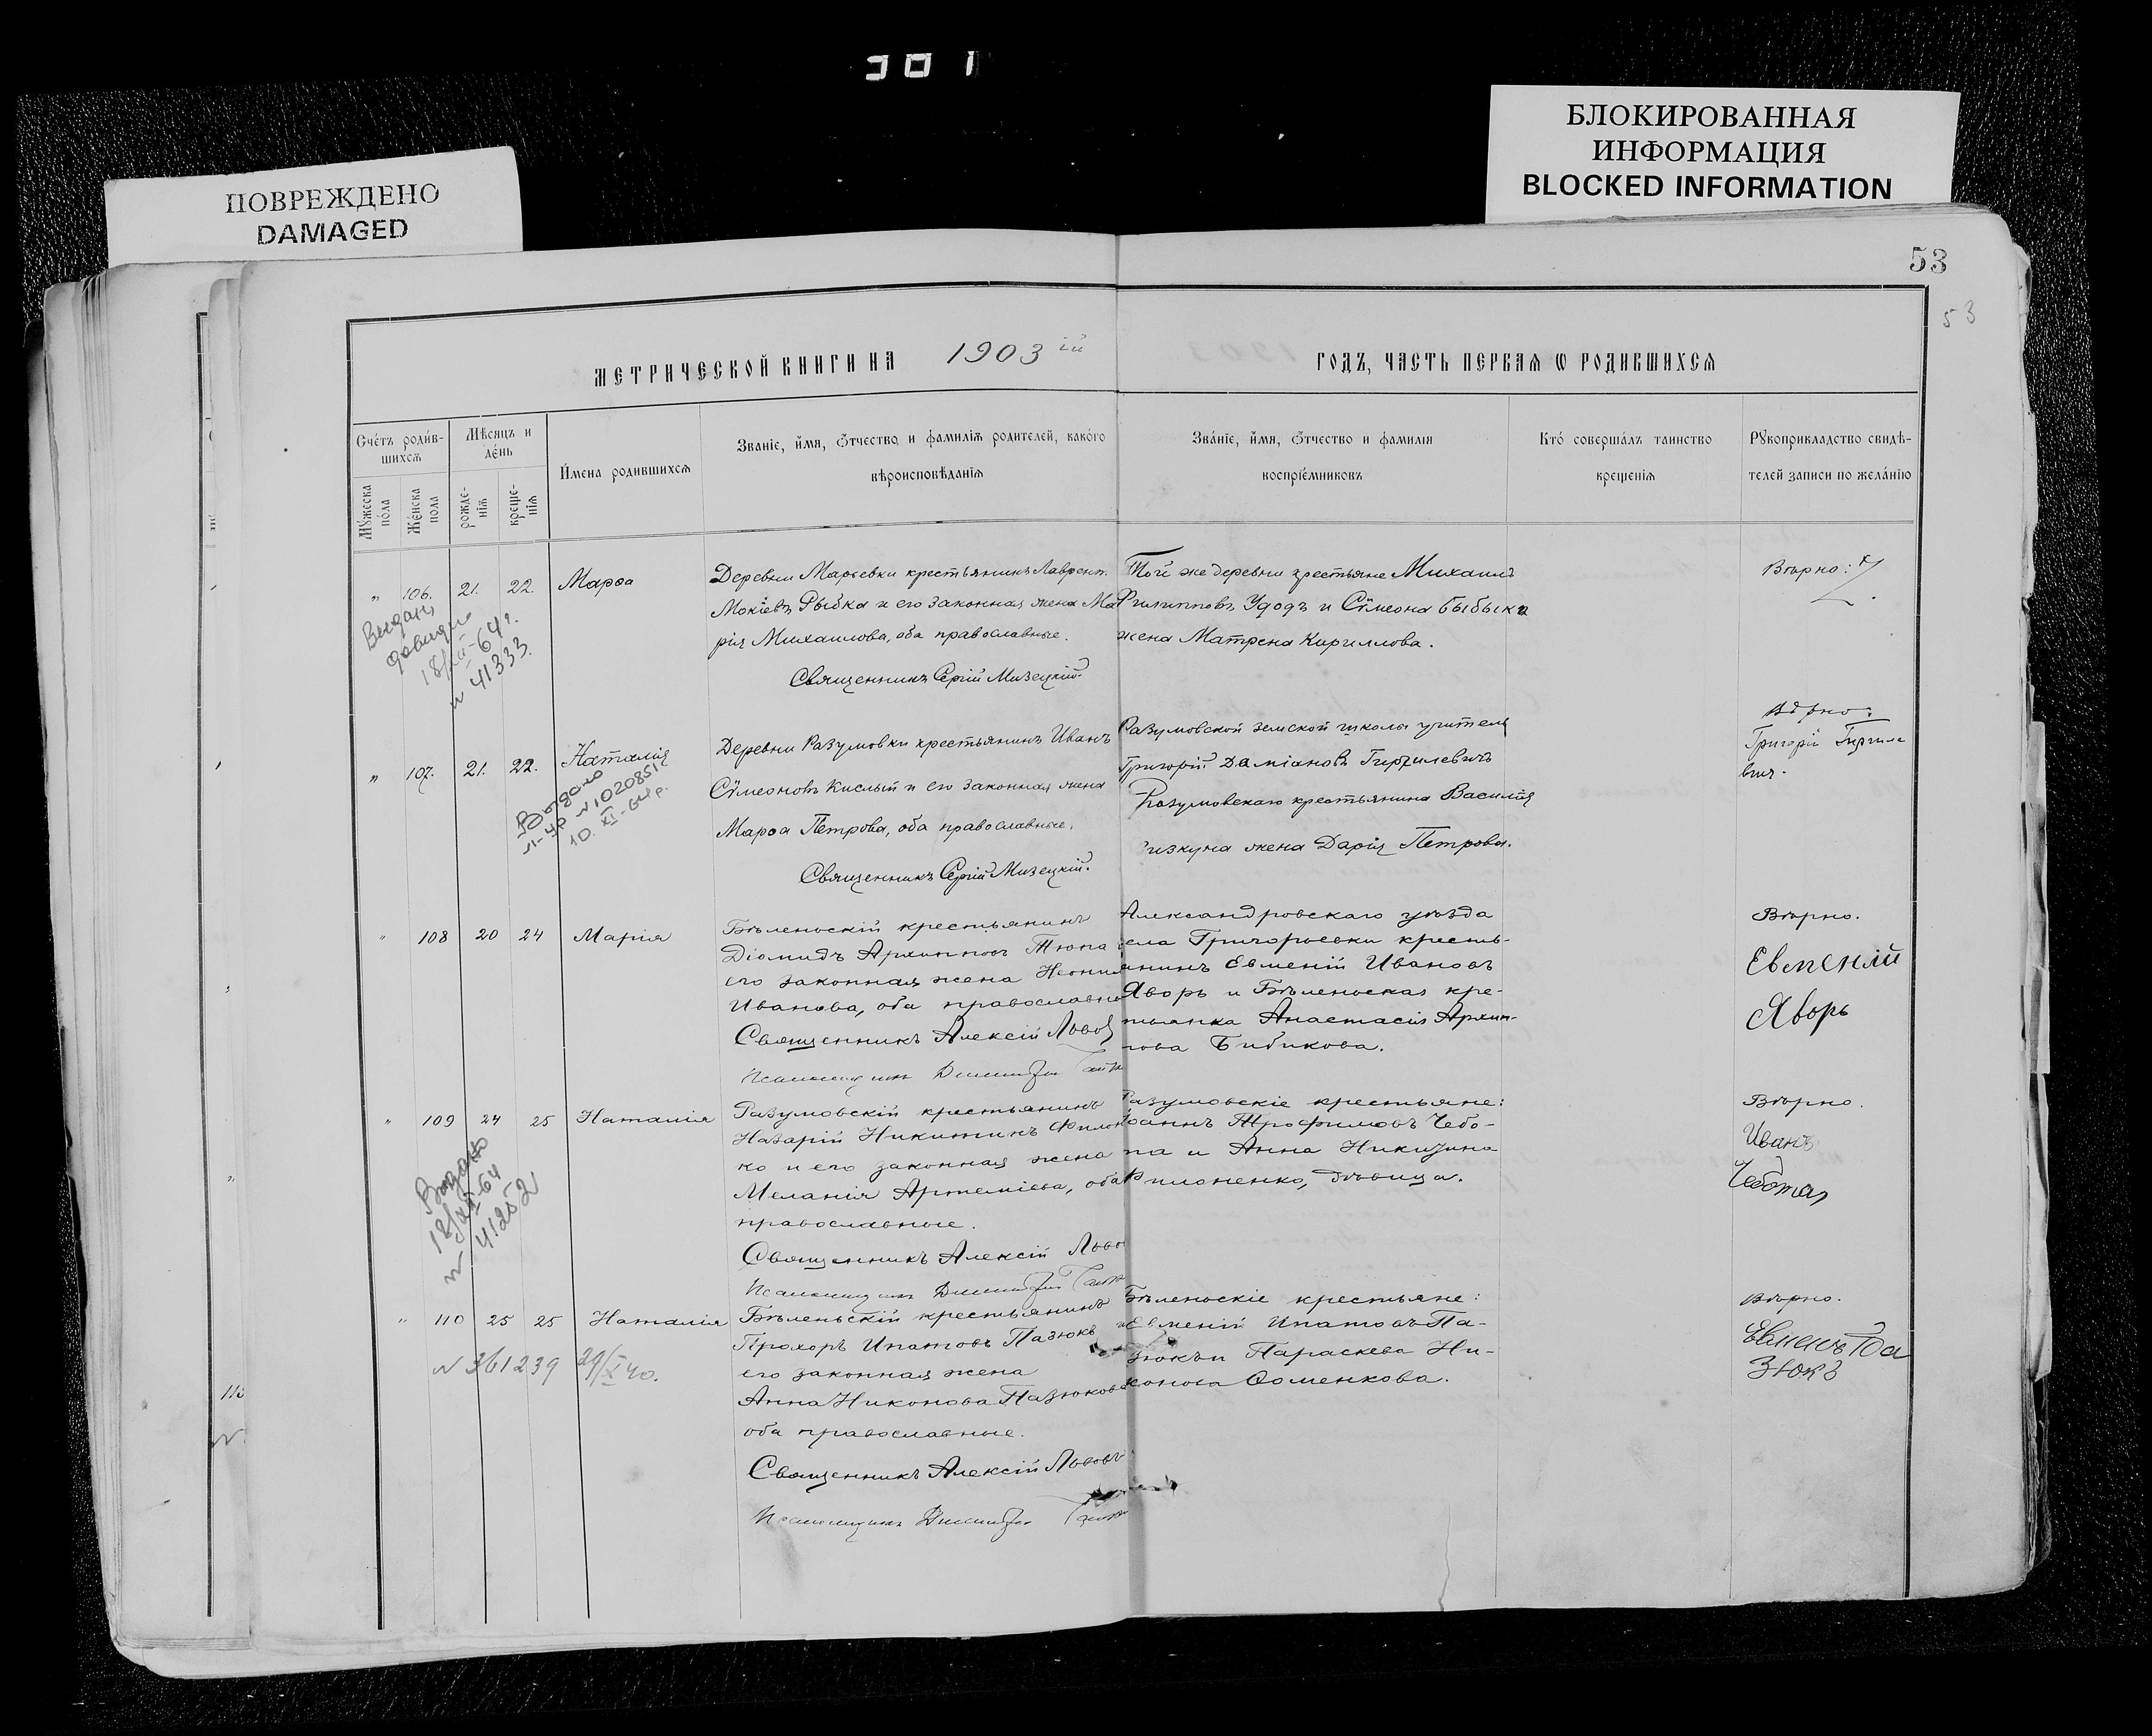 301
ПОВРЕЖДЕНО
DAMAGED
БЛОКИРОВАННАЯ
ИНФОРМАЦИЯ
BLOCKED INFORMATION
53
53
МЕТРИЧЕСКОЙ КНИГИ НА 1903 ій ГОДЪ, ЧАСТЬ ПЕРВАЯ Ѡ РОДИВШИХСЯ
Счетъ родив-
шихся
Мѣсяцъ и
день
Мужеска
пола
Женска
пола
рожде-
нія
креще-
нія
Имена родившихся
Званіе, имя, отчество, и фамилія родителей, какого
вѣроисповѣданія
Званіе, имя, отчество и фамилія
воспріемниковъ
Кто совершалъ таинство
крещенія
Рукоприкладство свидѣ-
телей записи по желанію
" 106. 21. 22. Марѳа
Деревни Марьевки крестьянинъ Лаврент.
Мокіевъ Рыбка и его законная жена Ма
рія Михаилова, оба православные.
Священникъ Сергій Мизецкій.
Той же деревни крестьяне Михаилъ
Филипповъ Удодъ и Сѵмеона Быбыка
жена Матрена Кириллова.
Вѣрно:
18/XII-64 г.
№ 41333.
" 107. 21. 22. Наталія
Выдано
№ 1020851
10. XI-64 р.
Деревни Разумовки крестьянинъ Иванъ
Сѵмеоновъ Кислый и его законная жена
Марѳа Петрова, оба православные.
Священникъ Сергій Мизецкій.
Разумовской земской школы учитель
Григорій Даміановъ
Разумовскаго крестьянина Василія
жена Дарія Петрова.
Вѣрно:
Григорій
вич.
" 108 20 24 Марія
Бѣленьскій крестьянинъ
Діомидъ Архиповъ Тюпа
его законная жена Неонила
Иванова, оба православные
Священникъ Алексій Львовъ
Псаломщикъ Димитрій
Александровскаго уѣзда
села Григорьевки кресть-
янинъ Евменій Ивановъ
Яворъ и Бѣленьская кре-
тьянка Анастасія Архип-
пова Бибикова.
Вѣрно.
Евменій
Яворъ
" 109 24 25 Наталія
Выдано
18/XII-64
№ 41252
Разумовскій крестьянинъ
Назарій Никитинъ Филон
ко и его законная жена
Меланія Артеміева, оба
православные.
Священникъ Алексій Львов
Псаломщикъ Димитрій
Разумовскіе крестьяне:
Іоаннъ Трофимовъ Чебо-
та и Анна Никитина
Филоненко, дѣвица.
Вѣрно.
Иванъ
Чебота
" 110 25 25 Наталія
№ 361239 29/X 40.
Бѣленьскій крестьянинъ
Прохоръ Ипатовъ Пазюкъ и
его законная жена
Анна Никонова Пазюкова
оба православные.
Священникъ Алексій Львовъ
Псаломщикъ Димитрій
Бѣленьскіе крестьяне:
Евменій Ипатовъ Па-
зюкъ и Параскева Ни-
конова Ѳоменкова.
Вѣрно.
Евменъ Па
зюкъ